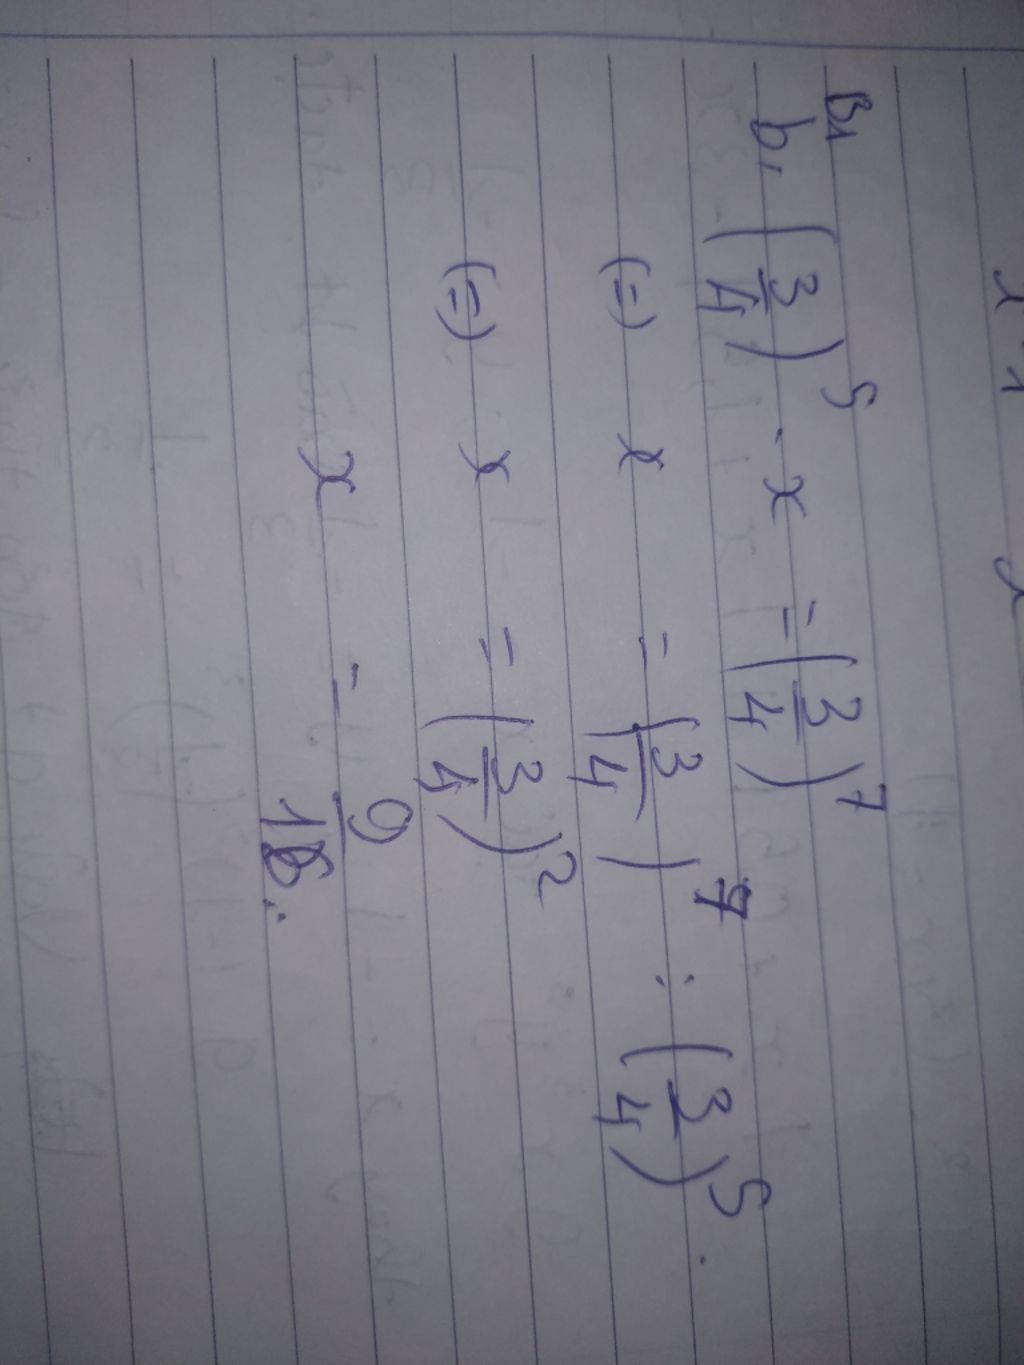 B1
b, (3/4)^5 . x = (3/4)^7
(=) x = (3/4)^7 : (3/4)^5 .
(=) x = (3/4)^2
x = 9/16 .